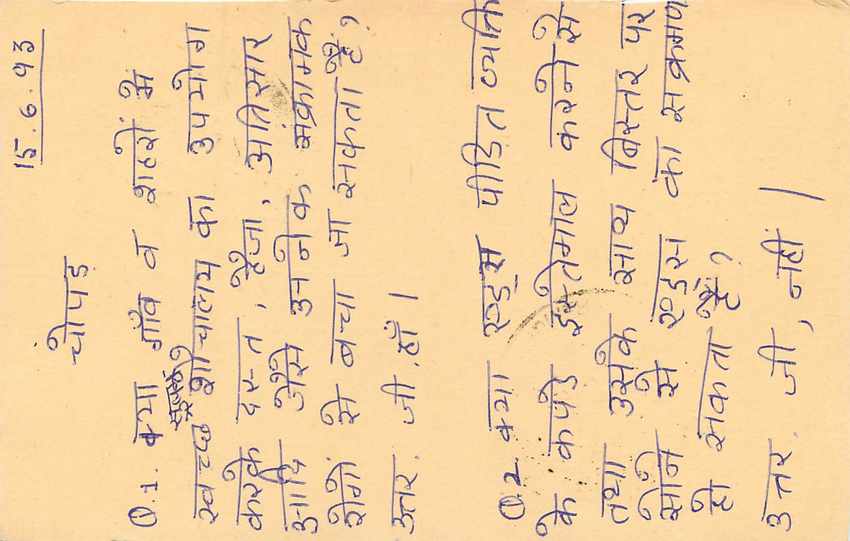 15.6.93
चोपड
Q.1. क्या गाँव व शहरों में
स्वच्छ शौचालय का उपयोग
करके दस्त, हैजा, अतिसार
आदि जैसे अनेक संक्रामक
रोगों से बचा जा सकता है?
उत्तर. जी हाँ।
Q2. क्या एड्स पीडित व्यक्ति
के कपडे इस्तेमाल करने से
तथा उसके साथ बिस्तर पर
सोने से एडस का संक्रमण
हो सकता है?
उत्तर. जी, नहीं।